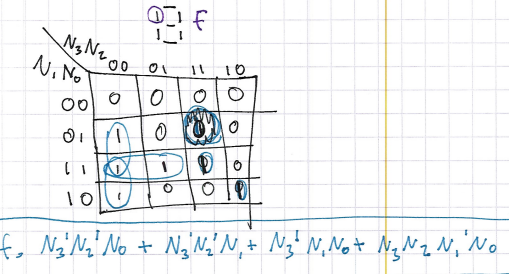 1 1 F
1 1
N3N2
N1N0 00 01 11 10
00 0 0 0 0
01 1 0 0
11 1 1 0
10 1 0 0
f, N3'N2'N0 + N3'N2'N1 + N3'N1N0 + N3N2N1'N0